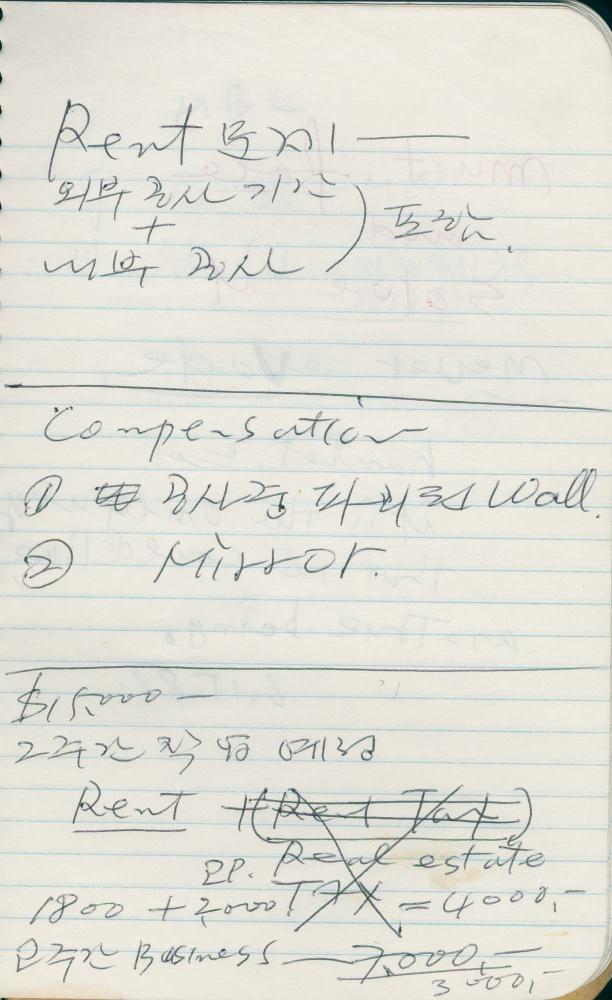 Rent 모게 —
외부 공사 기간
+
내부 공사 ) 포함.
Compensation
① 공사중 파괴된 Wall.
② Mirror.
$15,000 —
2주간 작업 예정
Rent +(Rent Tax)
PP. Real estate
1800 + 2,000 TAX = 4000.-
2주간 Business — 7,000.-
3,000.-